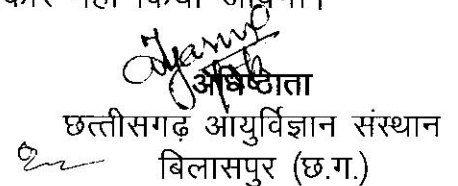 नहीं किया जायेगा।
अधिष्ठाता
छत्तीसगढ़ आयुर्विज्ञान संस्थान
बिलासपुर (छ.ग.)